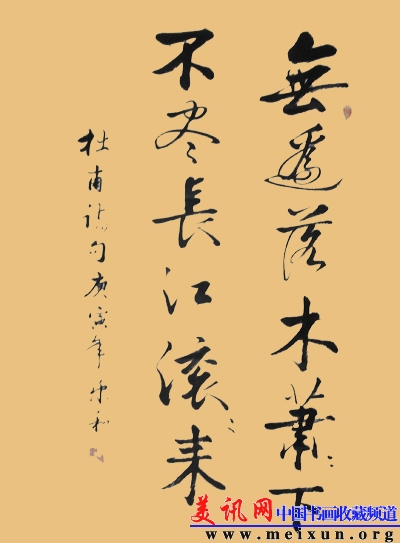 無邊落木蕭〻下
不尽長江滚〻来
杜甫詩句庚寅年
美讯网 中国书画收藏频道
www.meixun.org